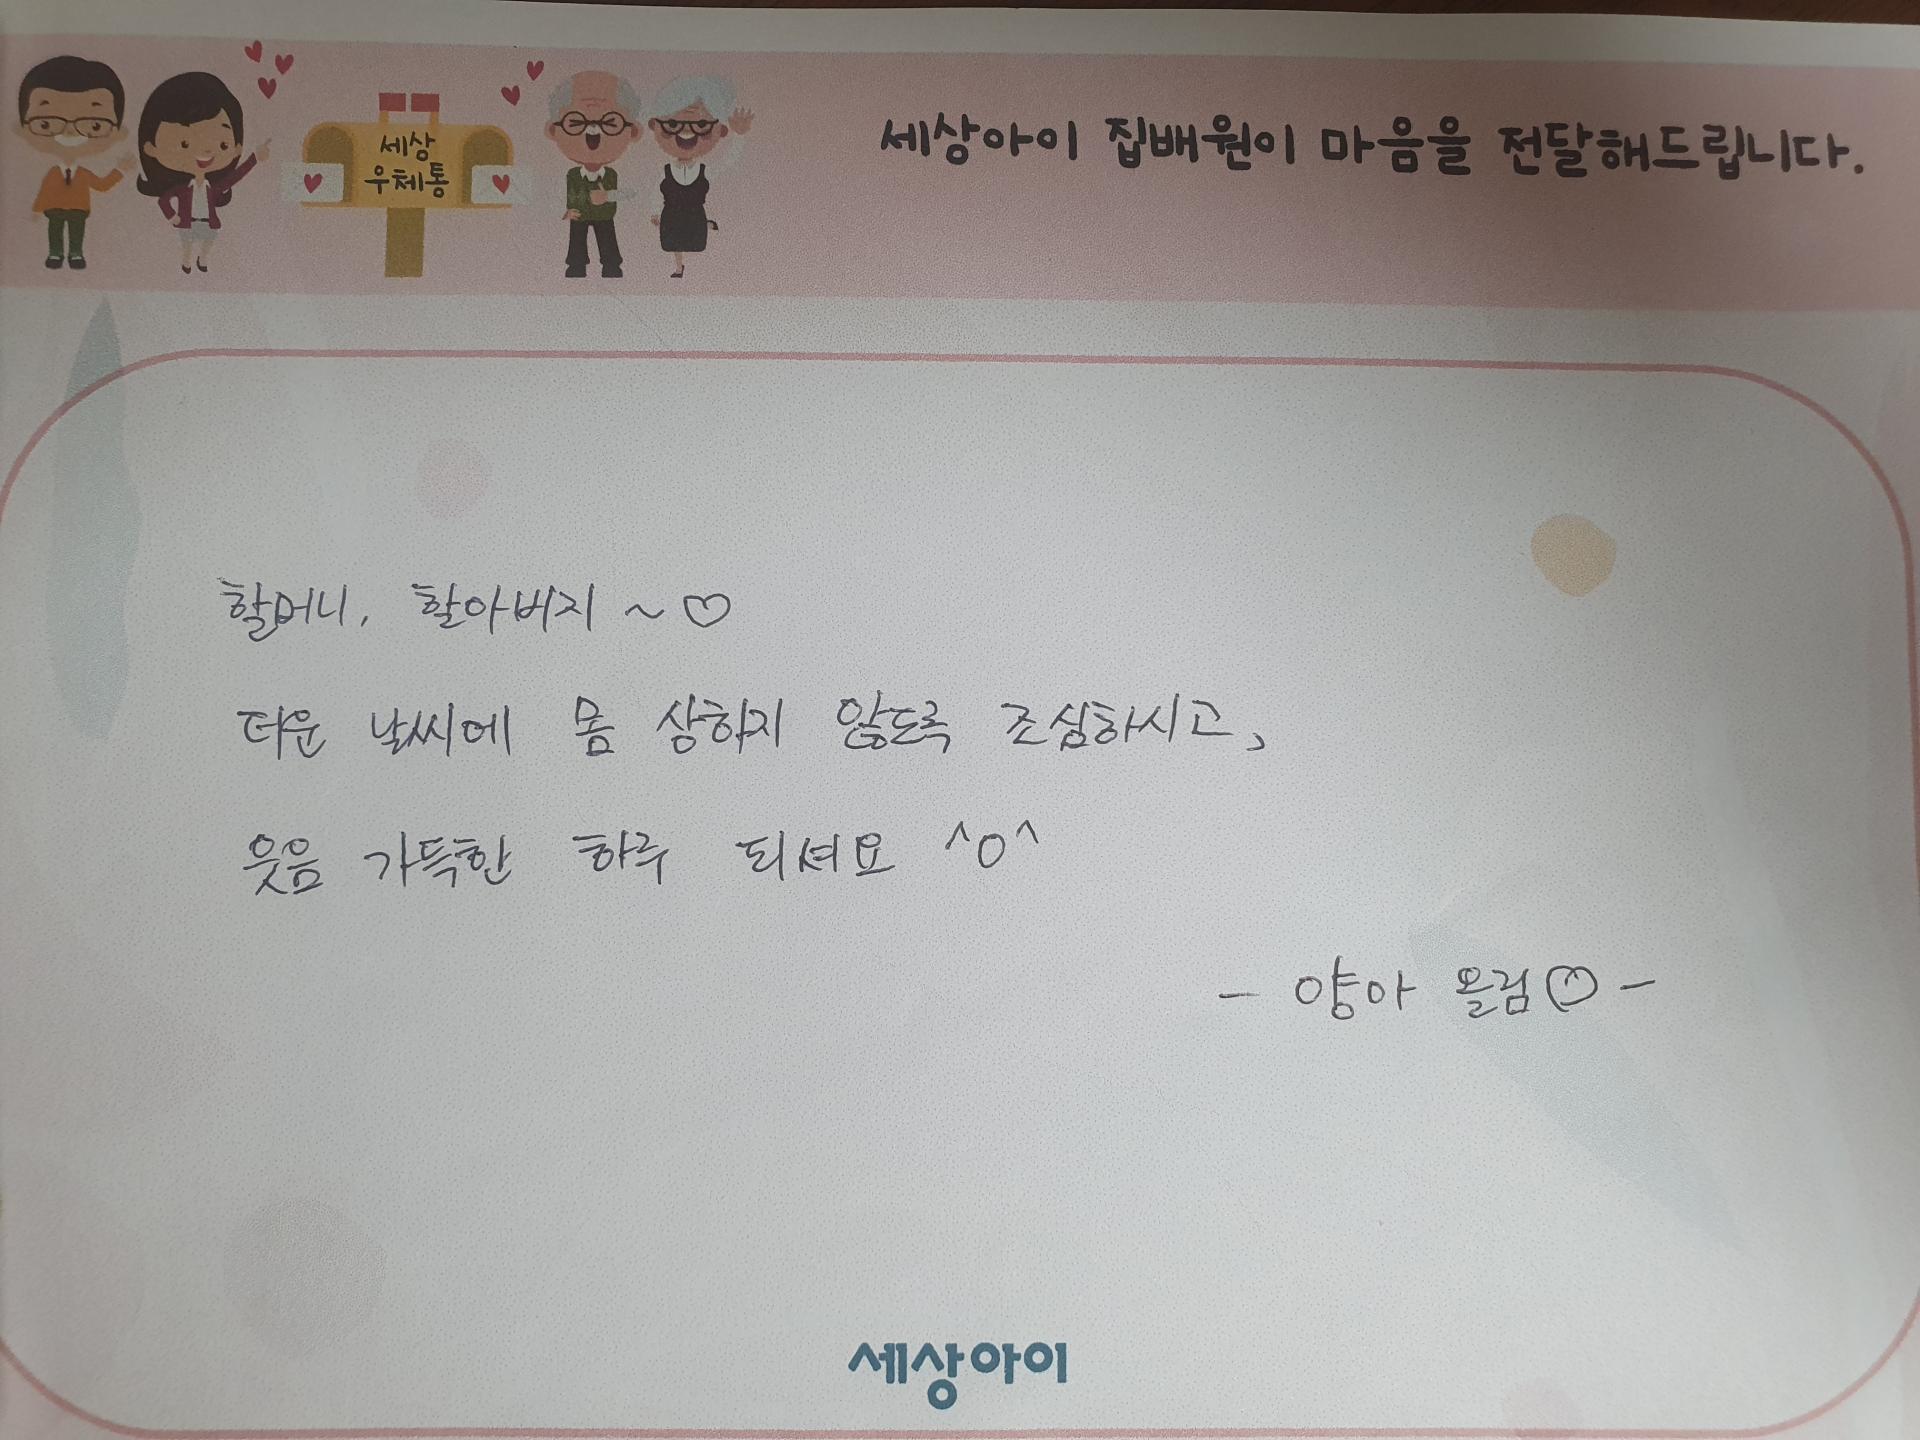 세상
우체통
세상아이 집배원이 마음을 전달해드립니다.
할머니, 할아버지 ~ ♡
더운 날씨에 몸 상하지 않도록 조심하시고,
웃음 가득한 하루 되셔요 ^o^
- 양아 올림♡ -
세상아이